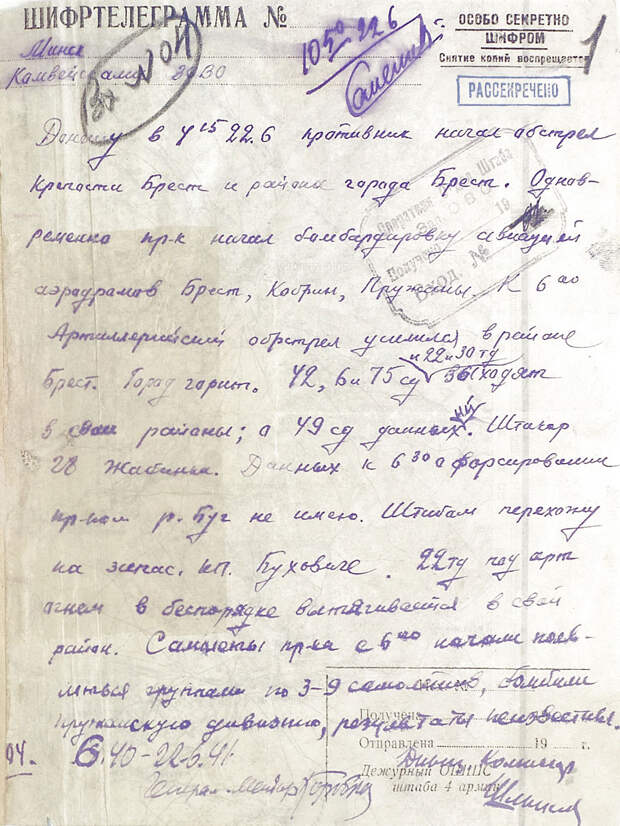 ШИФРТЕЛЕГРАММА №
ОСОБО СЕКРЕТНО
ШИФРОМ
Снятие копий воспрещается
РАССЕКРЕЧЕНО
1
Минск
1050 22 6
Доношу в 4 15 22.6 противник начал обстрел
крепости Брест и района города Брест. Однов-
ременно пр-к начал бомбардировку авиацией
аэродромов Брест, Кобрин, Пружаны. К 6 00
Артиллерийский обстрел усилился в районе
и 22 и 30 тд
Брест. Город горит. 42, 6 и 75 сд выходят
в свои районы; о 49 сд данных нет. Штакор
28 Жабинка. Данных к 6 30 о форсировании
пр-ком р. Буг не имею. Штабом перехожу
на запас. кп. Буховиче. 22 тд под арт
огнем в беспорядке вытягивается в свой
район. Самолеты пр-ка с 6 00 начали появ-
ляться группами по 3-9 самолетов, бомбили
пружанскую дивизию, результаты неизвестны.
Получена
04. 6.40-22.6.41.
Отправлена 19 г.
Генерал Майор
Дежурный
штаба 4 армии